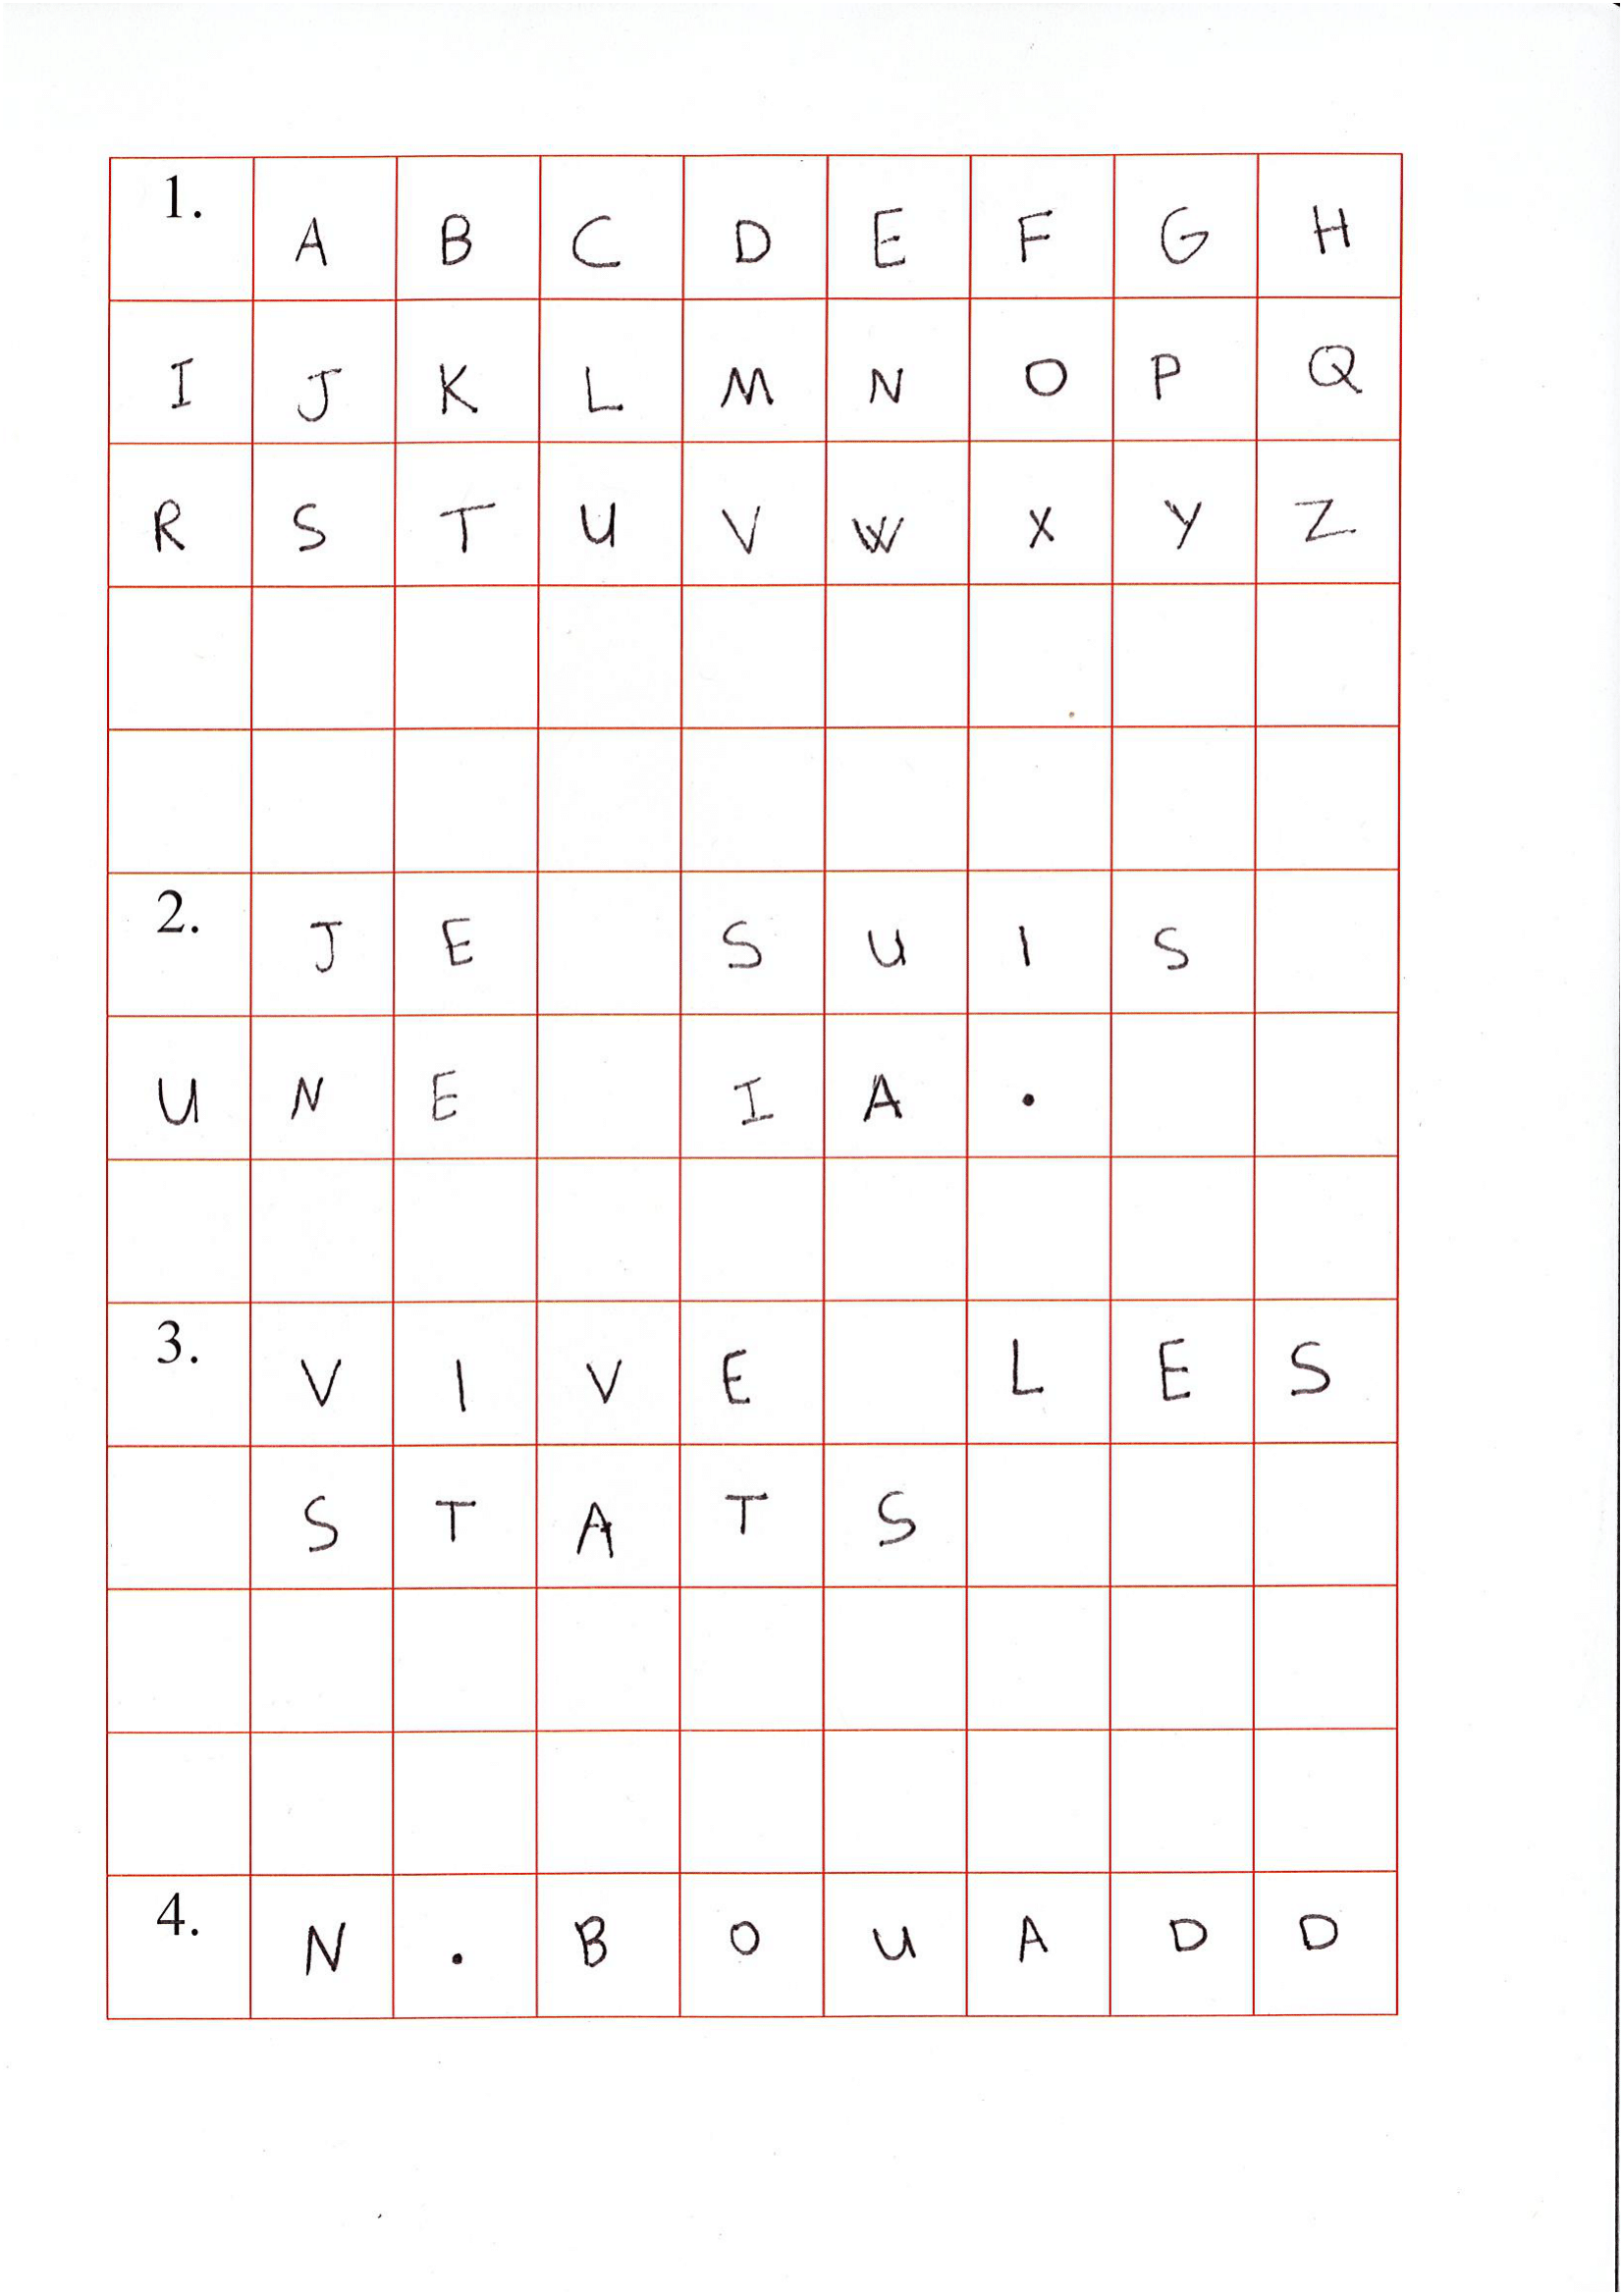 1. A B C D E F G H
I J K L M N O P Q
R S T U V W X Y Z
2. J E   S U I S
U N E   I A .
3. V I V E   L E S
S T A T S
4. N . B O U A D D